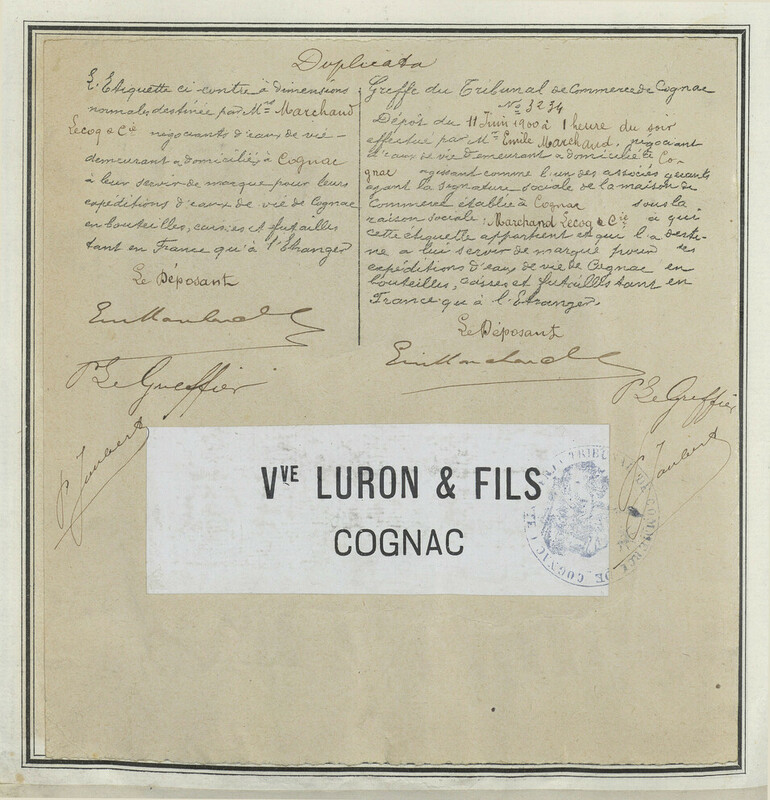 Duplicata
L'Etiquette ci-contre à dimensions
normales destinée par Mrs Marchand
Lecoq & Cie négociants d'eaux de vie
demeurant & domiciliés à Cognac
à leur servir de marque pour leurs
expéditions d'eaux de vie de Cognac
en bouteilles, caisses et futailles
tant en France qu'à l'Etranger
Le Déposant
Em Marchand
Pr Le Greffier
P. Jaubert
Greffe du Tribunal de Commerce de Cognac
No 3234
Dépôt du 11 Juin 1900 à 1 heure du soir
effectué par Mr Emile Marchand, négociant
d'eaux de vie demeurant & domicilié à Co-
gnac agissant comme l'un des associés gérants
ayant la signature sociale de la maison de
Commerce établie à Cognac sous la
raison sociale : Marchand Lecoq & Cie à qui
cette étiquette appartient et qui l'a desti-
né à lui servir de marque pour ses
expéditions d'eaux de vie de Cognac en
bouteilles, caisses et futailles tant en
France qu'à l'Etranger.
Le Déposant
Em Marchand
Pr Le Greffier
P. Jaubert
Vve LURON & FILS
COGNAC
TRIBUNAL DE COMMERCE
DE COGNAC